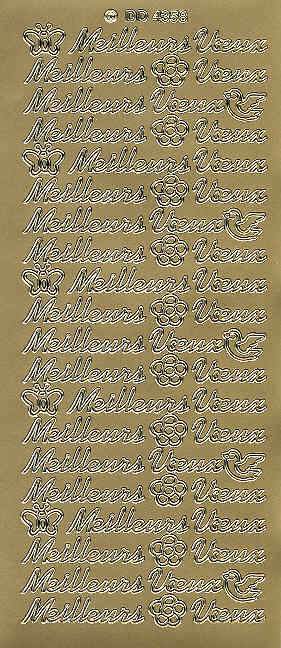 DD 4958
Meilleurs Vœux
Meilleurs Vœux
Meilleurs Vœux
Meilleurs Vœux
Meilleurs Vœux
Meilleurs Vœux
Meilleurs Vœux
Meilleurs Vœux
Meilleurs Vœux
Meilleurs Vœux
Meilleurs Vœux
Meilleurs Vœux
Meilleurs Vœux
Meilleurs Vœux
Meilleurs Vœux
Meilleurs Vœux
Meilleurs Vœux
Meilleurs Vœux
Meilleurs Vœux
Meilleurs Vœux